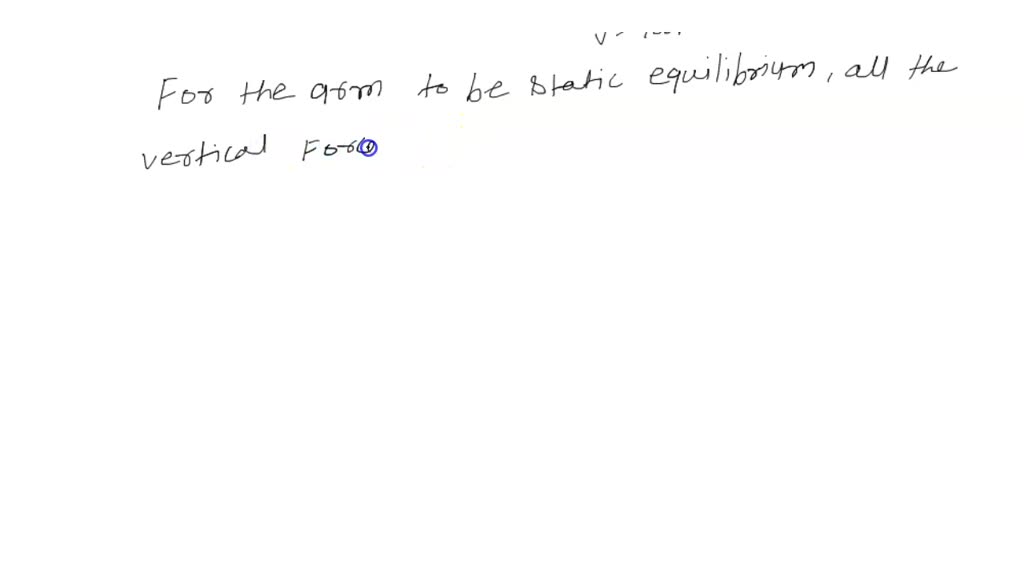 For the arm to be static equilibrium, all the
vertical Forc